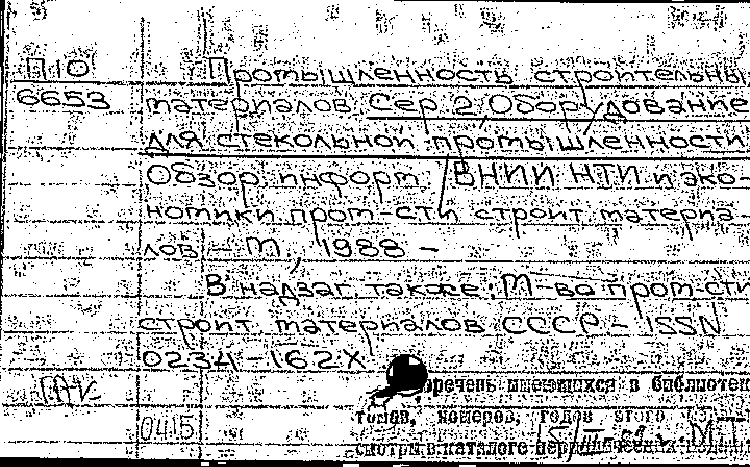 П10 Промышленность строительны
6653 материалов. Сер 2, Оборудование
для стекольной промышленности
Обзор. информ. / ВНИИ НТИ и эко-
номики пром-сти строит материа-
лов – М, 1988 –
В надзаг также: М-во пром-сти
строит. материалов СССР – ISSN
0234-162X
Перечень имеющихся в библиотек
томов, номеров, годов этого
0415
смотри в каталоге периодических